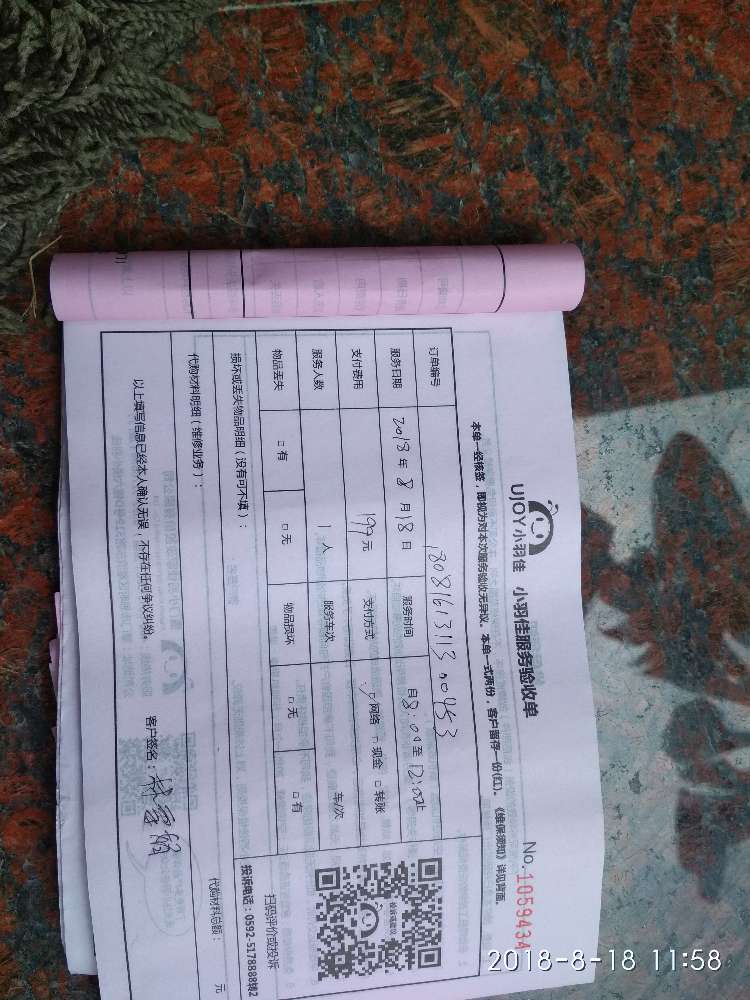 UJOY小羽佳 小羽佳服务验收单
No.1059434
本单一经核签，即视为对本次服务验收无异议。本单一式两份，客户留存一份(红)。《维保须知》详见背面。
订单编号 1808161311300453
服务日期 2018 年 8 月 18 日 服务时间 自 8:00 至 12:00止
支付费用 199元 支付方式 □网络 □现金 □转账
服务人数 1 人 服务车次 车/次
物品丢失 □有 □无 物品损坏 □无 □有
损坏或丢失物品明细（没有可不填）：
代购材料明细（维修业务）：
代购材料总额： 元
以上填写信息已经本人确认无误，不存在任何争议纠纷。 客户签名：
扫码评价或投诉
投诉电话：0592-5178888转2
2018-8-18 11:58